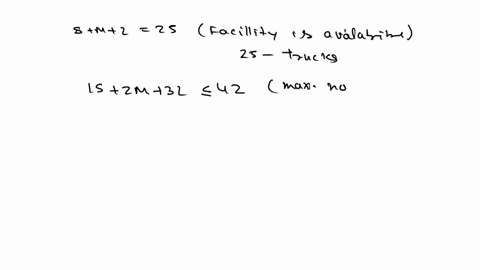 S+M+2 = 25 (Facillity is avalabiree)
25 - trucks
1S+2M+3L ≤ 42 (max. no